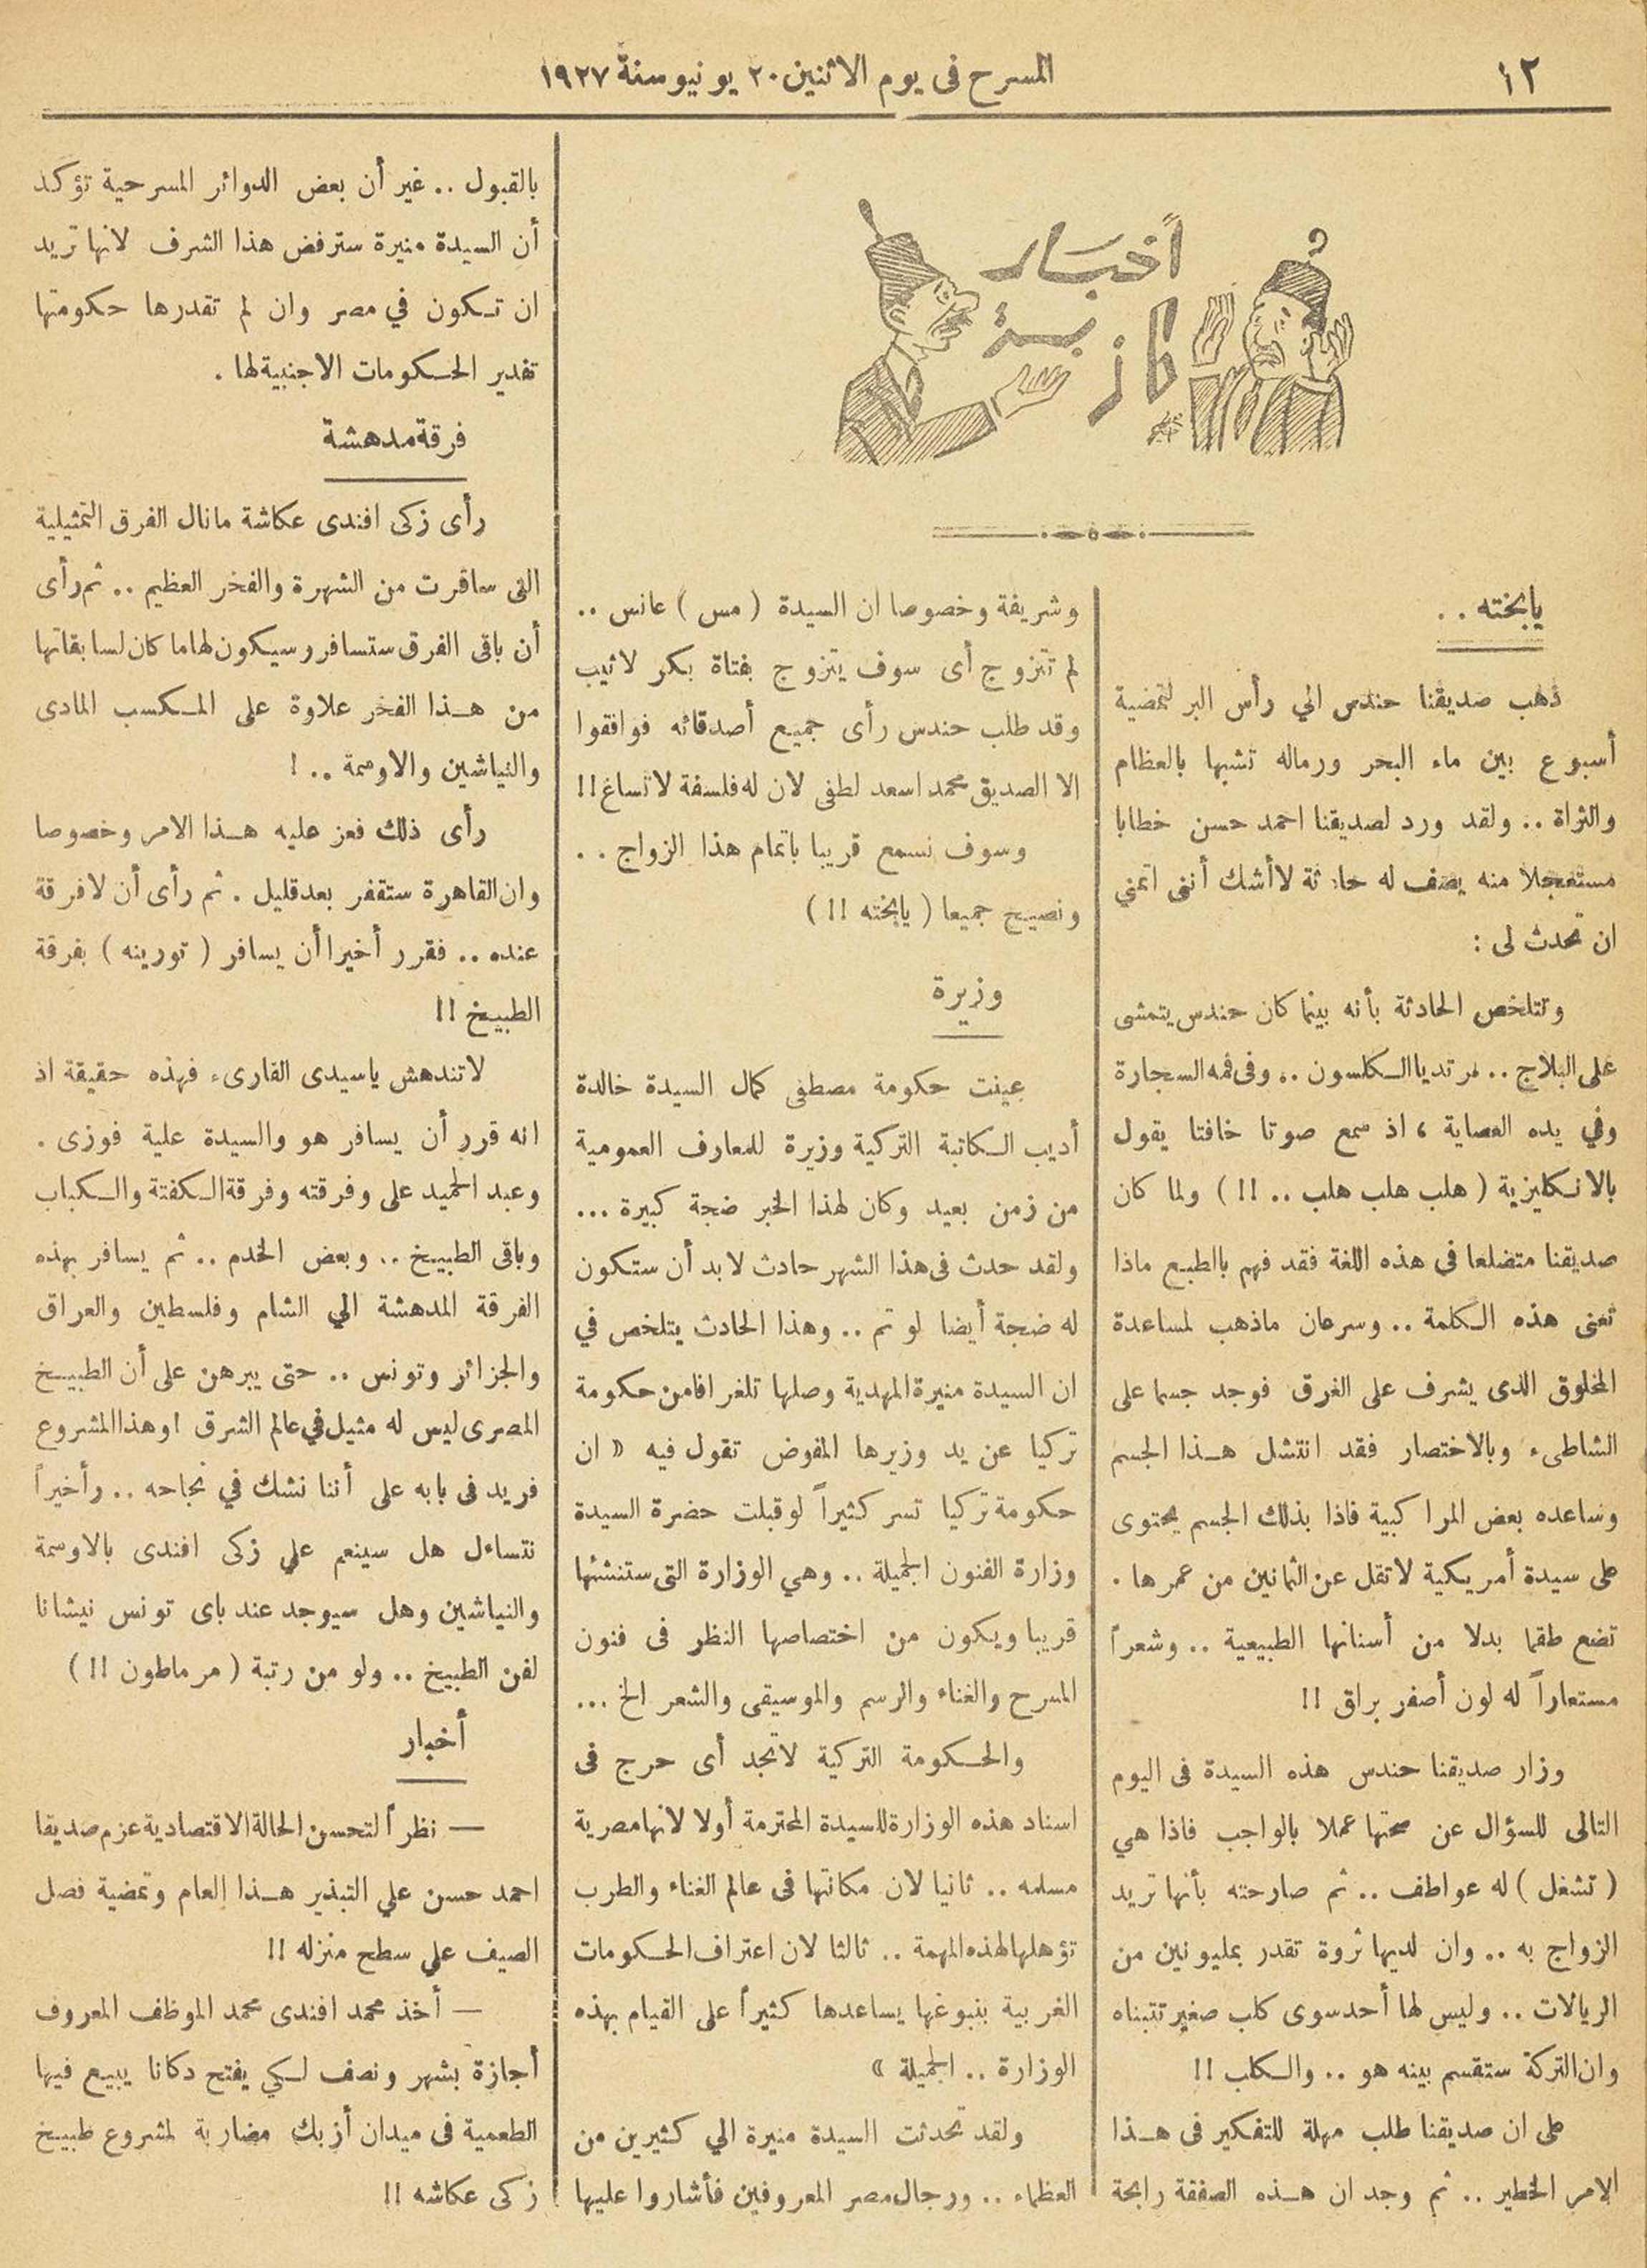 ١٢
المسرح فى يوم الاثنين ٢٠ يونيو سنة ١٩٢٧
أخبار
كاذبة
يا بخته . .
ذهب صديقنا حندس الي رأس البر لتمضية
أسبوع بين ماء البحر ورماله تشبها بالعظام
والثراة .. ولقد ورد لصديقنا احمد حسن خطابا
مستعجلا منه يصف له حادثة لا أشك أننى اتمني
ان تحدث لى :
وتتلخص الحادثة بأنه بينما كان حندس يتمشى
على البلاج .. مرتديا الكلسون .. وفى فمه السجارة
وفي يده العصاية ، اذ سمع صوتا خافتا يقول
بالانكليزية ( هلب هلب هلب .. !! ) ولما كان
صديقنا متضلعا في هذه اللغة فقد فهم بالطبع ماذا
تعنى هذه الكلمة .. وسرعان ماذهب لمساعدة
المخلوق الذى يشرف على الغرق فوجد جسما على
الشاطىء وبالاختصار فقد انتشل هذا الجسم
وساعده بعض المراكبية فاذا بذلك الجسم يحتوى
على سيدة أمريكية لا تقل عن الثمانين من عمرها .
تضع طقما بدلا من أسنانها الطبيعية .. وشعراً
مستعاراً له لون أصفر براق !!
وزار صديقنا حندس هذه السيدة فى اليوم
التالى للسؤال عن صحتها عملا بالواجب فاذا هي
( تشغل ) له عواطف .. ثم صارحته بأنها تريد
الزواج به .. وان لديها ثروة تقدر بمليونين من
الريالات .. وليس لها أحد سوى كلب صغير تتبناه
وان التركة ستقسم بينه هو .. والكلب !!
على ان صديقنا طلب مهلة للتفكير فى هذا
الامر الخطير .. ثم وجد ان هذه الصفقة رابحة
وشريفة وخصوصا ان السيدة ( مس ) عانس ..
لم تتزوج أى سوف يتزوج بفتاة بكر لا ثيب
وقد طلب حندس رأى جميع أصدقائه فوافقوا
الا الصديق محمد اسعد لطفى لان له فلسفة لا تساغ !!
وسوف نسمع قريبا باتمام هذا الزواج . .
ونصيح جميعا ( يا بخته !! )
وزيرة
عينت حكومة مصطفى كمال السيدة خالدة
أديب الكاتبة التركية وزيرة للمعارف العمومية
من زمن بعيد وكان لهذا الخبر ضجة كبيرة ...
ولقد حدث فى هذا الشهر حادث لا بد أن ستكون
له ضجة أيضا لو تم .. وهذا الحادث يتلخص في
ان السيدة منيرة المهدية وصلها تلغرافا من حكومة
تركيا عن يد وزيرها المفوض تقول فيه « ان
حكومة تركيا تسر كثيراً لو قبلت حضرة السيدة
وزارة الفنون الجميلة .. وهي الوزارة التى ستنشئها
قريبا ويكون من اختصاصها النظر فى فنون
المسرح والغناء والرسم والموسيقى والشعر الخ ...
والحكومة التركية لا تجد أى حرج فى
اسناد هذه الوزارة للسيدة المحترمة أولا لانها مصرية
مسلمه .. ثانيا لان مكانتها فى عالم الغناء والطرب
تؤهلها لهذه المهمة .. ثالثا لان اعتراف الحكومات
الغربية بنبوغها يساعدها كثيراً على القيام بهذه
الوزارة .. الجميلة »
ولقد تحدثت السيدة منيرة الي كثيرين من
العظماء .. ورجال مصر المعروفين فأشاروا عليها
بالقبول .. غير أن بعض الدوائر المسرحية تؤكد
أن السيدة منيرة سترفض هذا الشرف لانها تريد
ان تكون في مصر وان لم تقدرها حكومتها
تقدير الحكومات الاجنبية لها .
فرقة مدهشة
رأى زكى افندى عكاشة مانال الفرق التمثيلية
التى سافرت من الشهرة والفخر العظيم .. ثم رأى
أن باقى الفرق ستسافر وسيكون لها ما كان لسابقاتها
من هذا الفخر علاوة على المكسب المادى
والنياشين والاوسمة .. !
رأى ذلك فعز عليه هذا الامر وخصوصا
وان القاهرة ستقفر بعد قليل . ثم رأى أن لا فرقة
عنده .. فقرر أخيرا أن يسافر ( تورينه ) بفرقة
الطبيخ !!
لا تندهش يا سيدى القارىء فهذه حقيقة اذ
انه قرر أن يسافر هو والسيدة علية فوزى .
وعبد الحميد على وفرقته وفرقة الكفتة والكباب
وباقى الطبيخ .. وبعض الخدم .. ثم يسافر بهذه
الفرقة المدهشة الي الشام وفلسطين والعراق
والجزائر وتونس .. حتى يبرهن على أن الطبيخ
المصرى ليس له مثيل في عالم الشرق ! وهذا المشروع
فريد فى بابه على أننا نشك في نجاحه .. وأخيراً
نتساءل هل سينعم علي زكى افندى بالاوسمة
والنياشين وهل سيوجد عند باى تونس نيشانا
لفن الطبيخ .. ولو من رتبة ( مرماطون !! )
أخبار
— نظراً لتحسن الحالة الاقتصادية عزم صديقا
احمد حسن علي التبذير هذا العام وتمضية فصل
الصيف علي سطح منزله !!
— أخذ محمد افندى محمد الموظف المعروف
أجازة بشهر ونصف لكي يفتح دكانا يبيع فيها
الطعمية فى ميدان أزبك مضاربة لمشروع طبيخ
زكى عكاشه !!